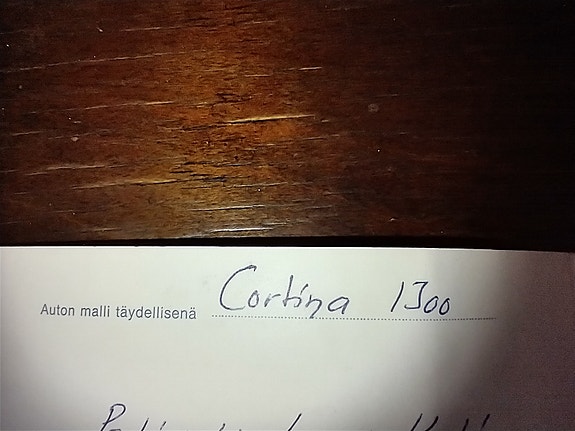 Auton malli täydellisenä Cortina 1300